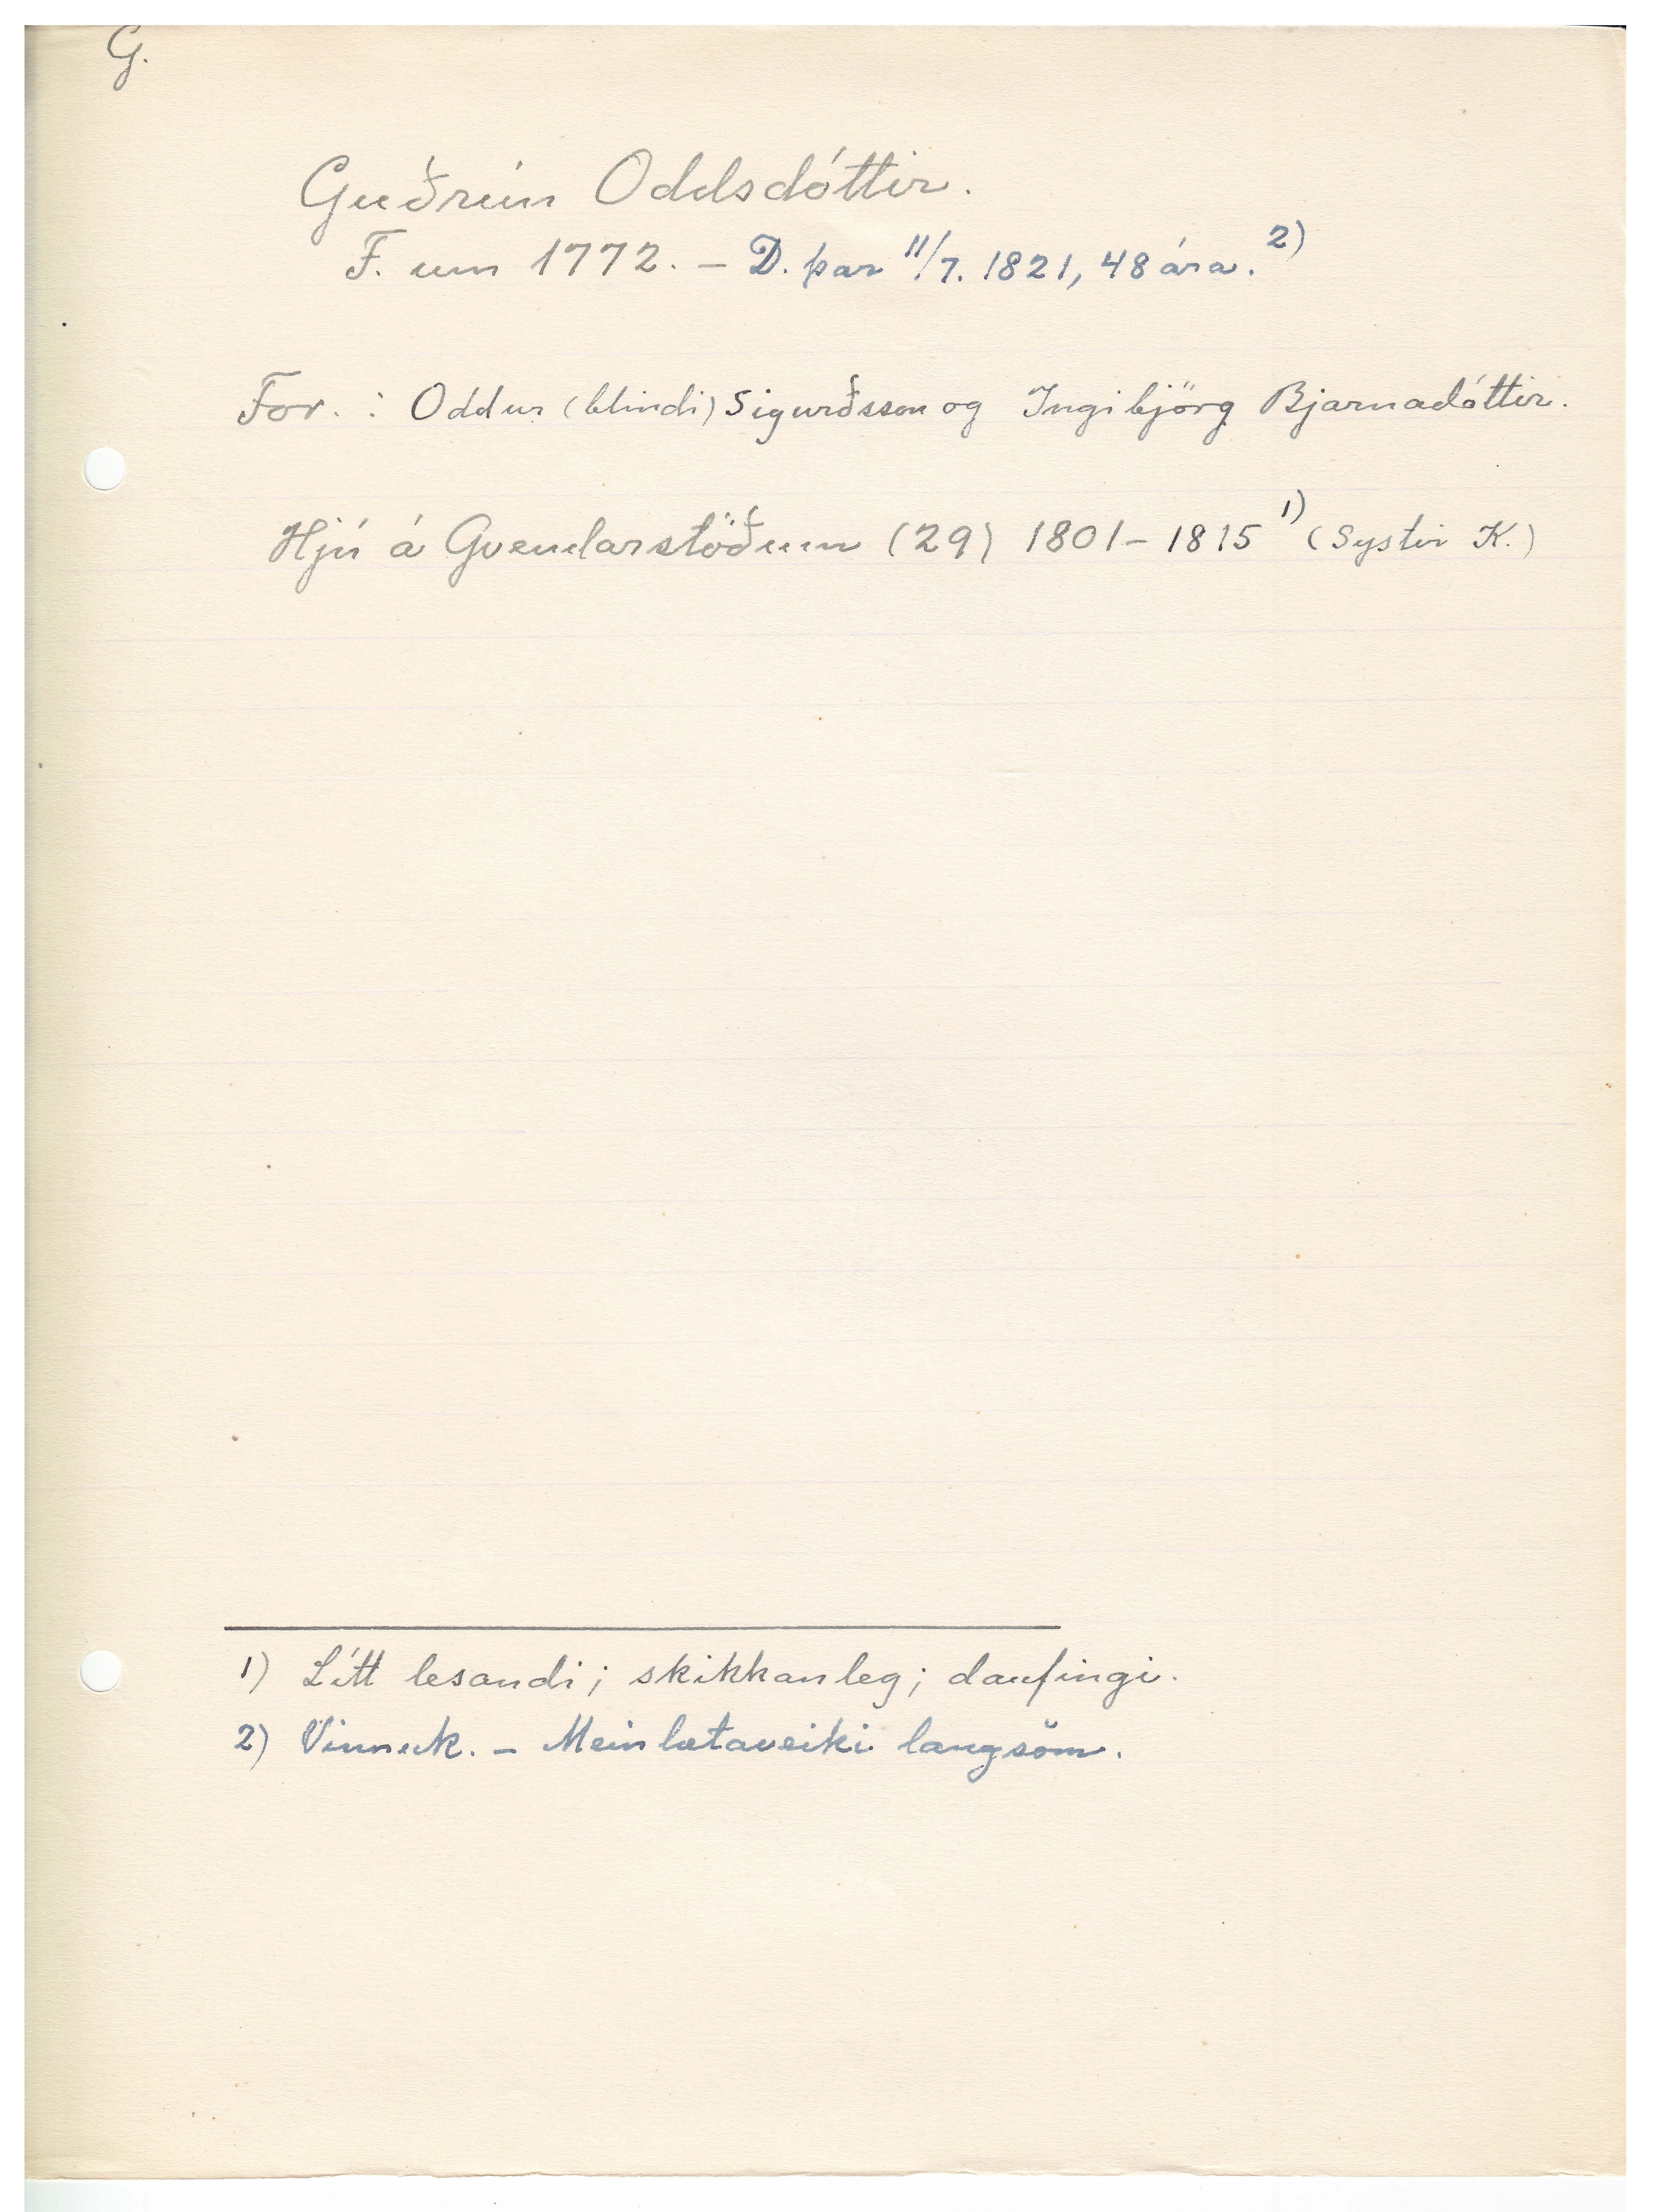 G.
Guðrún Oddsdóttir.
F. um 1772. – D. þar 11/7. 1821, 48 ára. 2)
For. : Oddur (blindi) Sigurðsson og Ingibjörg Bjarnadóttir.
Hjú á Gvendarstöðum (29) 1801 – 1815 1) (Systir K.)
1) Lítt lesandi; skikkanleg; daufingi.
2) Vinnuk. – Meinlætaveiki langsöm.